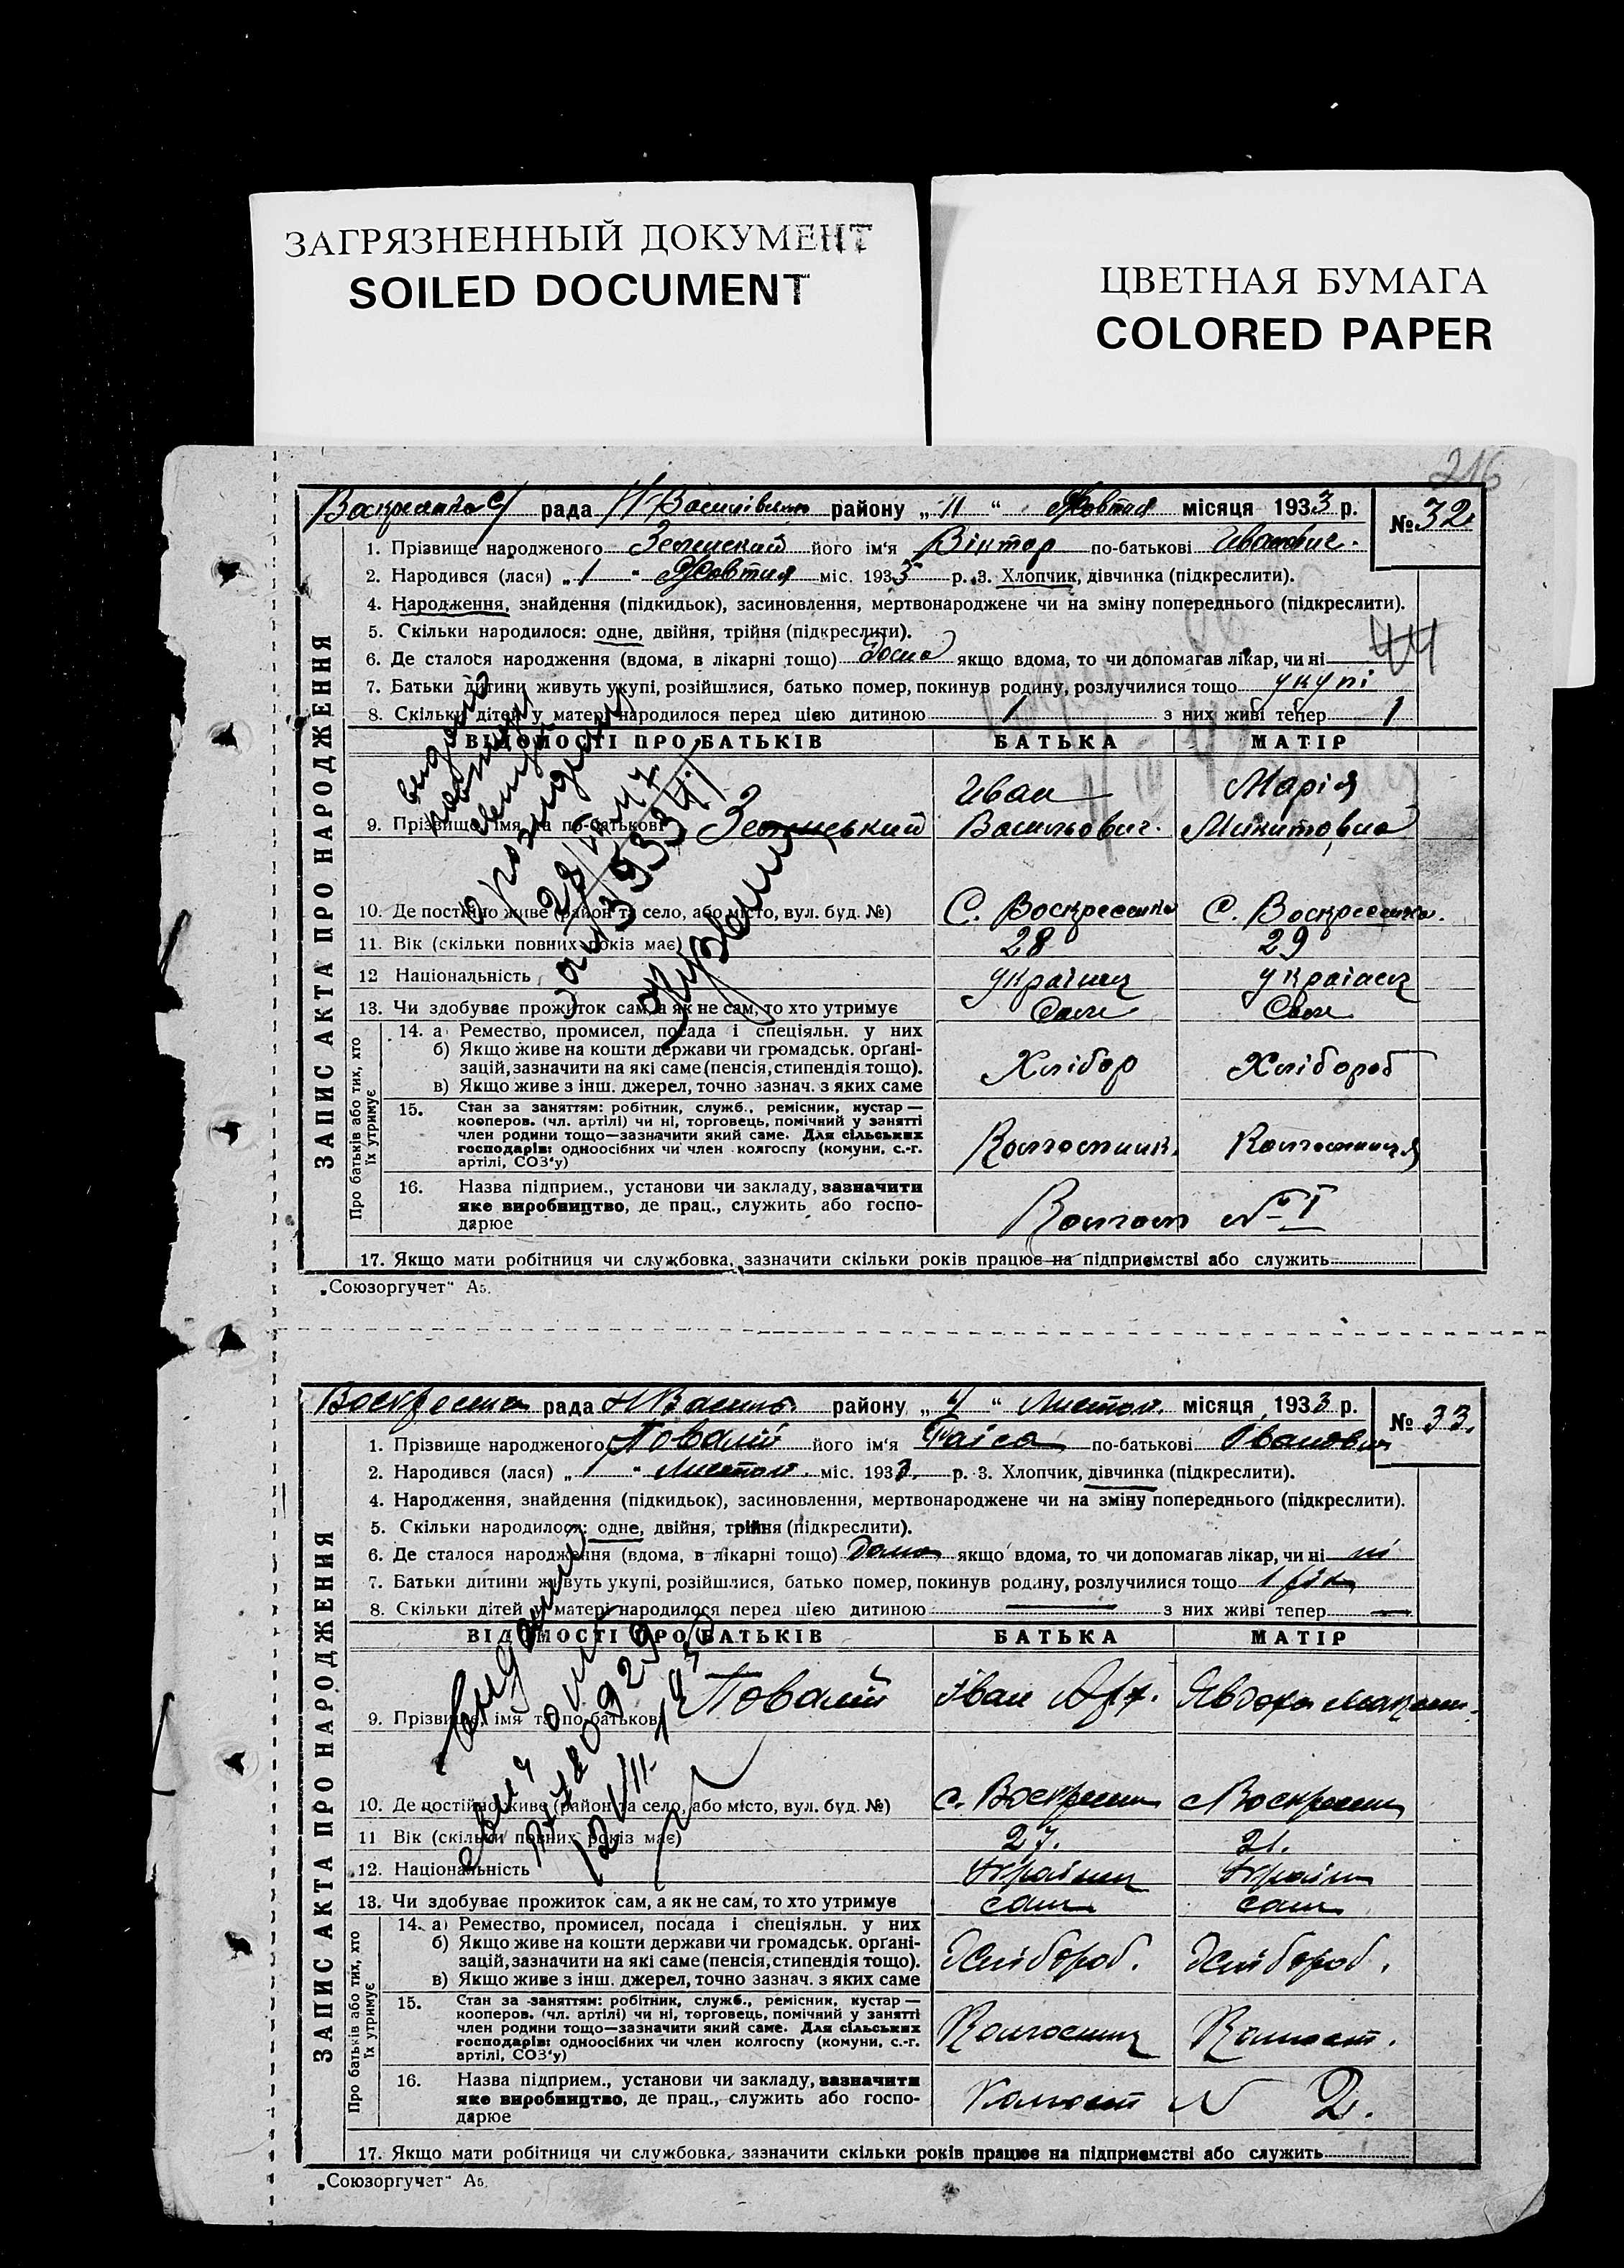 ЗАГРЯЗНЕННЫЙ ДОКУМЕНТ
SOILED DOCUMENT
ЦВЕТНАЯ БУМАГА
COLORED PAPER
216
рада району „ 11 “ Жовтня місяця 1933 р. № 32
1. Прізвище народженого Зеленский його ім'я Віктор по-батькові Иванович.
2. Народився (лася) „ 1 “ Жовтня міс. 1933 р. 3. Хлопчик, дівчинка (підкреслити).
4. Народження, знайдення (підкидьок), засиновлення, мертвонароджене чи на зміну попереднього (підкреслити).
5. Скільки народилося: одне, двійня, трійня (підкреслити).
44
6. Де сталося народження (вдома, в лікарні тощо) Дома якщо вдома, то чи допомагав лікар, чи ні
7. Батьки дитини живуть укупі, розійшлися, батько помер, покинув родину, розлучилися тощо укупі
8. Скільки дітей у матері народилося перед цією дитиною 1 з них живі тепер 1
ЗАПИС АКТА ПРО НАРОДЖЕННЯ
ВІДОМОСТІ ПРО БАТЬКІВ БАТЬКА МАТІР
Иван Марія
9. Прізвище, імя та по-батькові Зеленський Васильович. Микитовна
10. Де постійно живе (район та село, або місто, вул. буд. №) С. Воскресенка С. Воскресенка.
11. Вік (скільки повних років має) 28 29
12 Національність українец українец
13. Чи здобуває прожиток сам, а як не сам, то хто утримує Сам Сам
Про батьків або тих, хто їх утримує
14. а) Ремество, промисел, посада і спеціяльн. у них
б) Якщо живе на кошти держави чи громадськ. органі-
зацій, зазначити на які саме (пенсія, стипендія тощо).
в) Якщо живе з інш. джерел, точно зазнач. з яких саме
Хлібор Хлібороб
15. Стан за заняттям: робітник, служб., ремісник, кустар —
кооперов. (чл. артілі) чи ні, торговець, помічний у занятті
член родини тощо—зазначити який саме. Для сільських
господарів: одноосібних чи член колгоспу (комуни, с.-г.
артілі, СОЗ'у)
Колгоспник. Колгоспниця
16. Назва підприєм., установи чи закладу, зазначити
яке виробництво, де прац., служить або госпо-
дарює
Колгосп № I
17. Якщо мати робітниця чи службовка, зазначити скільки років працює на підприємстві або служить
„Союзоргучет“ А5.
видано
повторн
о рождении
рада району „ “ Листоп. місяця 1933 р. № 33.
1. Прізвище народженого Повалій його ім'я Раіса по-батькові Івановн
2. Народився (лася) „ 1 “ Листоп. міс. 1933. р. 3. Хлопчик, дівчинка (підкреслити).
4. Народження, знайдення (підкидьок), засиновлення, мертвонароджене чи на зміну попереднього (підкреслити).
5. Скільки народилося: одне, двійня, трійня (підкреслити).
6. Де сталося народження (вдома, в лікарні тощо) Дома якщо вдома, то чи допомагав лікар, чи ні ні
7. Батьки дитини живуть укупі, розійшлися, батько помер, покинув родину, розлучилися тощо
8. Скільки дітей у матері народилося перед цією дитиною — з них живі тепер —
ЗАПИС АКТА ПРО НАРОДЖЕННЯ
ВІДОМОСТІ ПРО БАТЬКІВ БАТЬКА МАТІР
9. Прізвище, імя та по-батькові Повалій Іван
10. Де постійно живе (район та село, або місто, вул. буд. №) с. Воскресен Воскресен
11 Вік (скільки повних років має) 27. 21.
12. Національність Українец Україн
13. Чи здобуває прожиток сам, а як не сам, то хто утримує сам сам
Про батьків або тих, хто їх утримує
14. а) Ремество, промисел, посада і спеціяльн. у них
б) Якщо живе на кошти держави чи громадськ. органі-
зацій, зазначити на які саме (пенсія, стипендія тощо).
в) Якщо живе з інш. джерел, точно зазнач. з яких саме
Хлібороб. Хлібороб.
15. Стан за заняттям: робітник, служб., ремісник, кустар —
кооперов. (чл. артілі) чи ні, торговець, помічний у занятті
член родини тощо—зазначити який саме. Для сільських
господарів: одноосібних чи член колгоспу (комуни, с.-г.
артілі, СОЗ'у)
Колгоспник Колгосп.
16. Назва підприєм., установи чи закладу, зазначити
яке виробництво, де прац., служить або госпо-
дарює
Колгосп N 2.
17. Якщо мати робітниця чи службовка, зазначити скільки років працює на підприємстві або служить
„Союзоргучет“ А5.